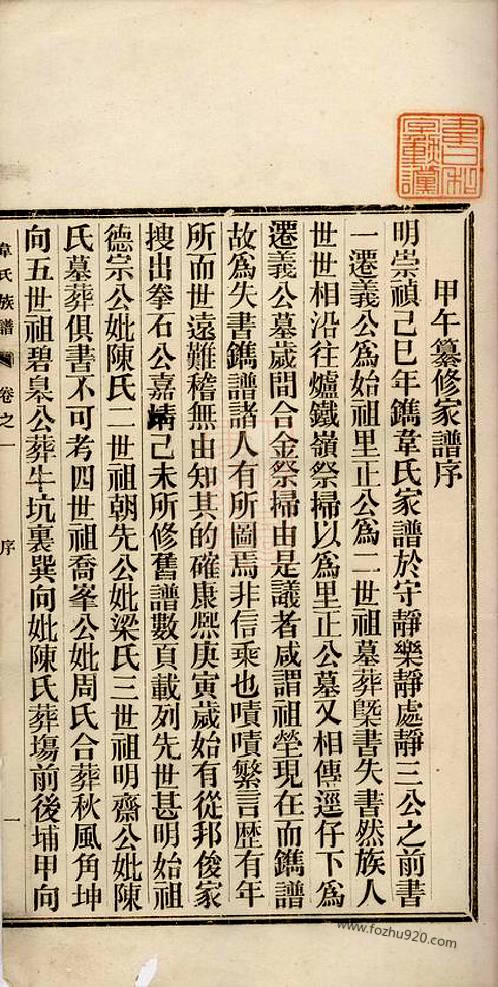 甲午纂修家譜序
明崇禎己巳年鐫韋氏家譜於守靜樂靜處靜三公之前書
一遷義公為始祖里正公為二世祖墓葬槩書失書然族人
世世相沿往爐鐵嶺祭掃以為里正公墓又相傳逕仔下為
遷義公墓歲間合金祭掃由是議者咸謂祖塋現在而鐫譜
故為失書鐫譜諸人有所圖焉非信乘也嘖嘖繁言歷有年
所而世遠難稽無由知其的確康熙庚寅歲始有從邦俊家
搜出拳石公嘉靖己未所修舊譜數頁載列先世甚明始祖
德宗公妣陳氏二世祖朝先公妣梁氏三世祖明齋公妣陳
氏墓葬俱書不可考四世祖喬峯公妣周氏合葬秋風角坤
向五世祖碧皋公葬牛坑裏巽向妣陳氏葬塲前後埔甲向
韋氏族譜 卷之一 序 一
www.fozhu920.com